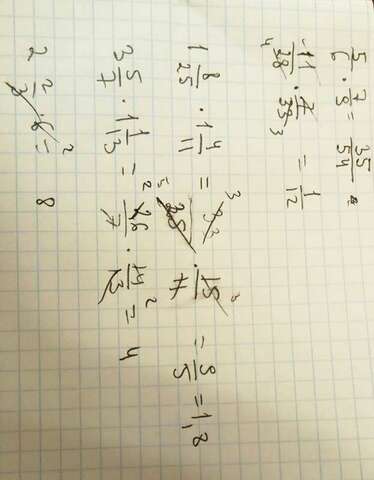 5/6 · 7/9 = 35/54
11/28 · 7/33 = 1/12 4 3
1 8/25 · 1 4/11 = 33/25 · 15/11 = 9/5 = 1,8 3 5 3
3 5/7 · 1 1/13 = 26/7 · 14/13 = 4 2 2
2 2/3 · 6 = 8 2